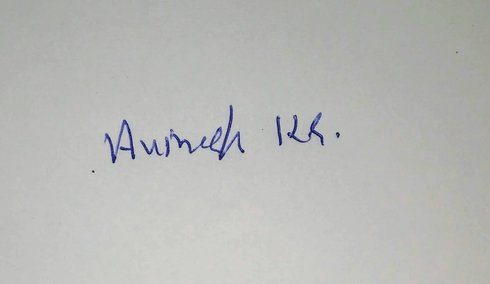 Avinash Kr.